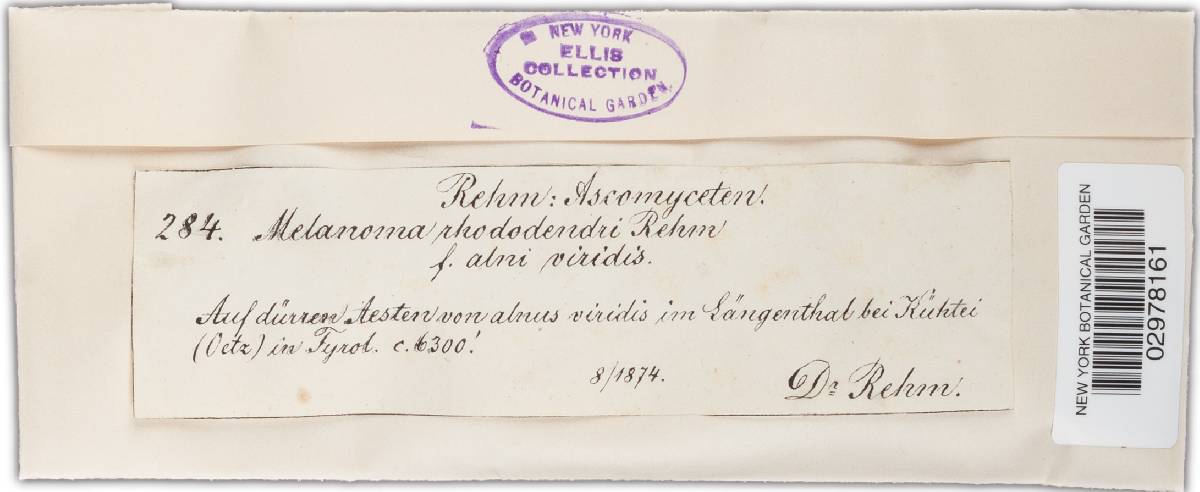 NEW YORK
ELLIS
COLLECTION
BOTANICAL GARDEN.
Rehm: Ascomyceten.
284. Melanoma rhododendri Rehm
f. alni viridis.
Auf dürren Aesten von alnus viridis im Längenthal bei Kühtei
(Oetz) in Tyrol. c. 6300'.
8/1874.
Dr Rehm.
NEW YORK BOTANICAL GARDEN
02978161